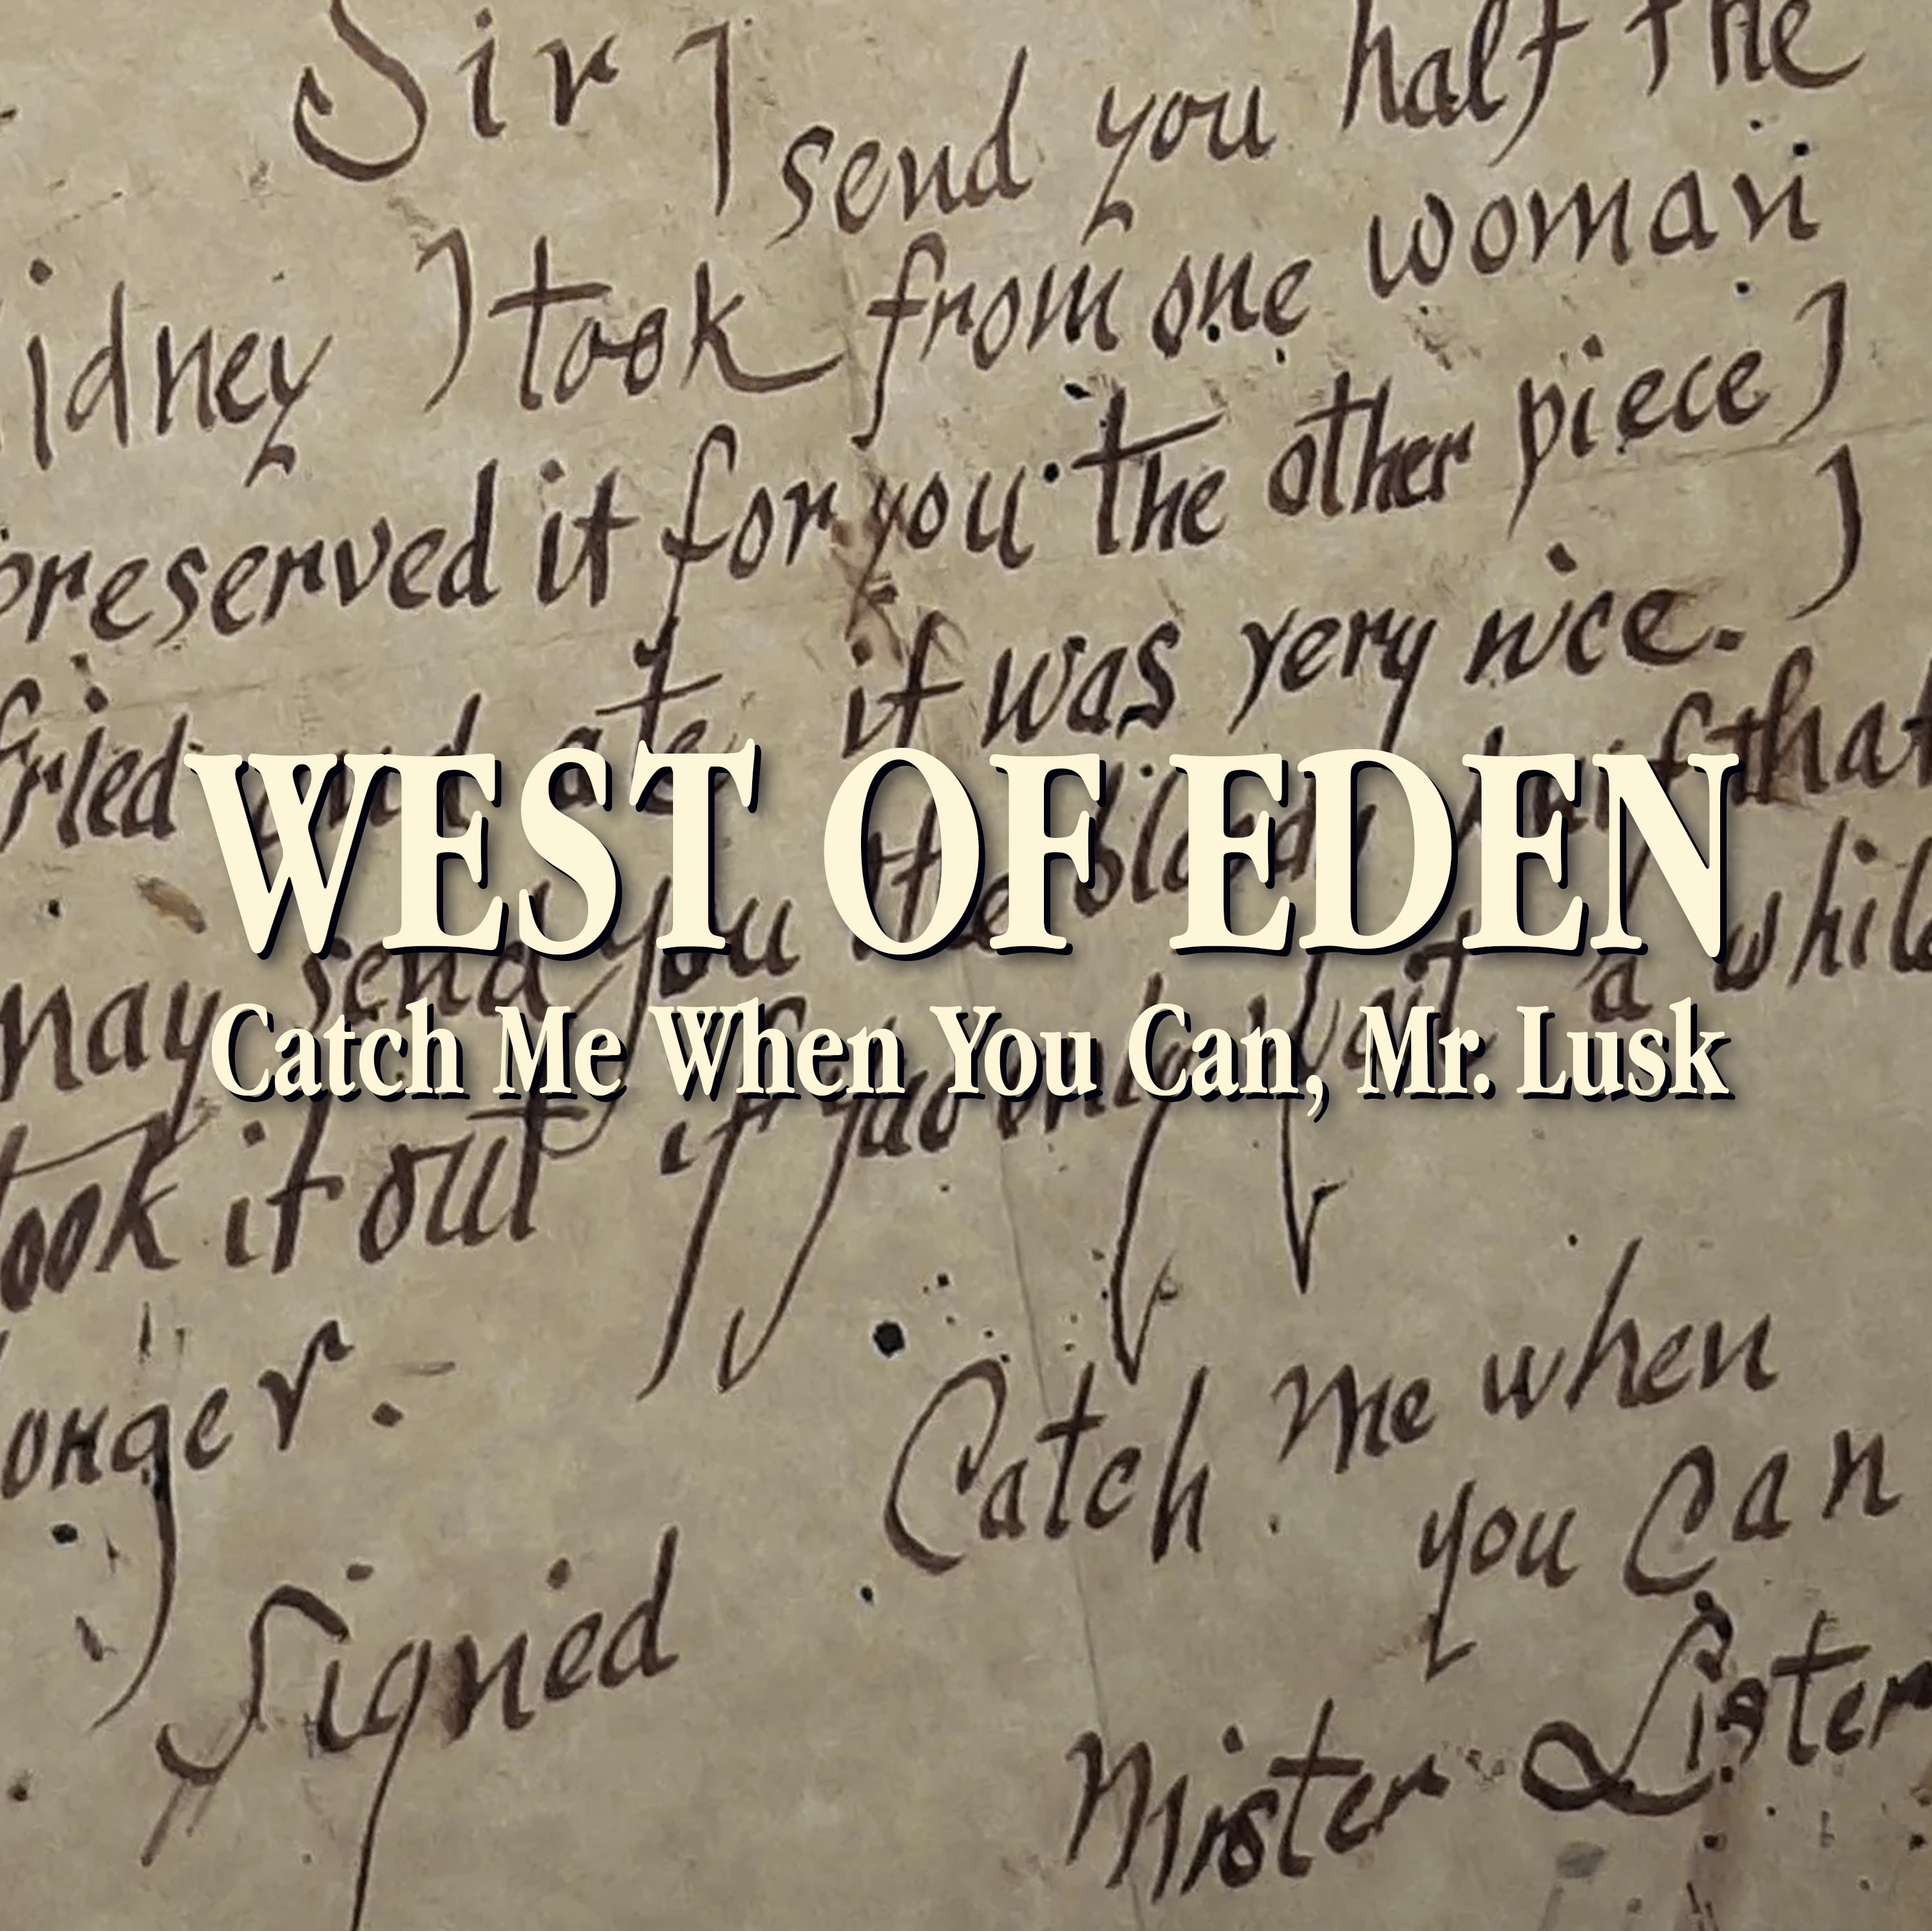 Sir I send you half the
idney I took from one woman
preserved it for you the other piece I
fried and ate it was very nice. I
WEST OF EDEN
may send you the bloody knif that
Catch Me When You Can, Mr. Lusk
took it out if you only wait a while
onger.
Catch me when
you Can
Signed
Mister Lister